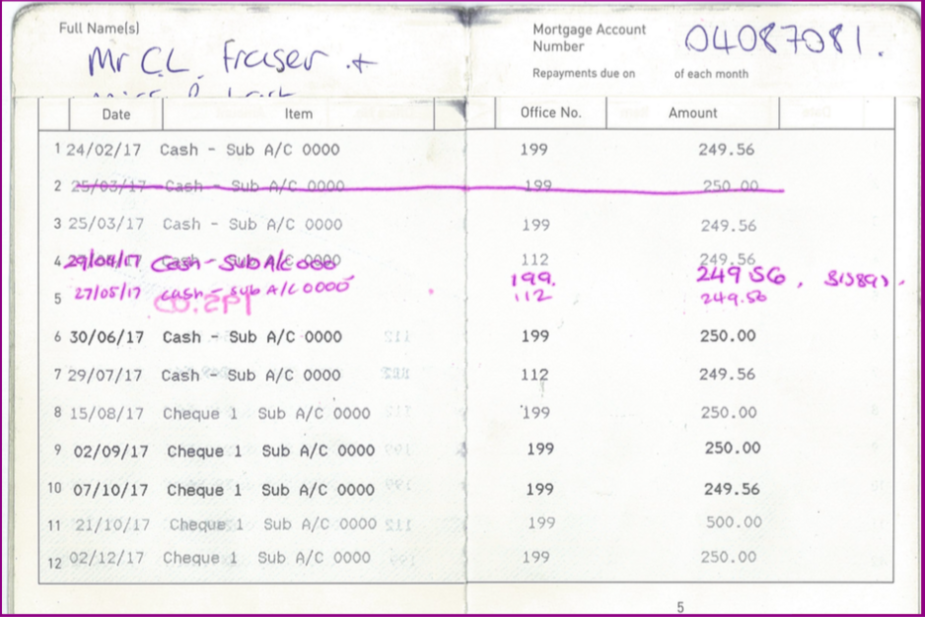 Full Name(s)
Mr C.L. Fraser +
Mortgage Account Number 04087081.
Repayments due on of each month
Date Item Office No. Amount
1 24/02/17 Cash - Sub A/C 0000 199 249.56
2 25/03/17 Cash - Sub A/C 0000 199 250.00
3 25/03/17 Cash - Sub A/C 0000 199 249.56
4 29/04/17 Cash - Sub A/C 000 112 249.56
199. 249 56,
5 27/05/17 cash - sub A/C 0000 112 249.56
6 30/06/17 Cash - Sub A/C 0000 199 250.00
7 29/07/17 Cash - Sub A/C 0000 112 249.56
8 15/08/17 Cheque 1 Sub A/C 0000 199 250.00
9 02/09/17 Cheque 1 Sub A/C 0000 199 250.00
10 07/10/17 Cheque 1 Sub A/C 0000 199 249.56
11 21/10/17 Cheque 1 Sub A/C 0000 199 500.00
12 02/12/17 Cheque 1 Sub A/C 0000 199 250.00
5